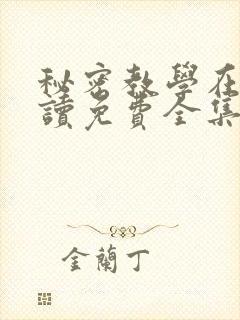 秘密教學在
讀免費全集
金蘭丁